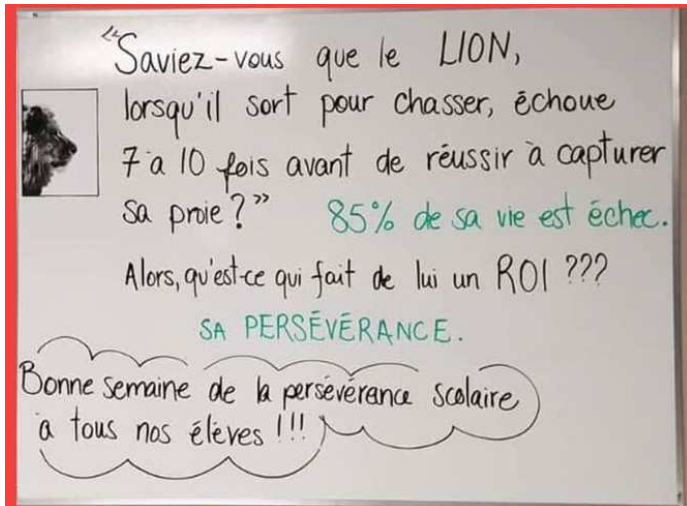 “Saviez-vous que le LION,
lorsqu'il sort pour chasser, échoue
7 à 10 fois avant de réussir à capturer
sa proie?” 85% de sa vie est échec.
Alors, qu'est-ce qui fait de lui un ROI ???
SA PERSÉVÉRANCE.
Bonne semaine de la persévérance scolaire
à tous nos élèves !!!